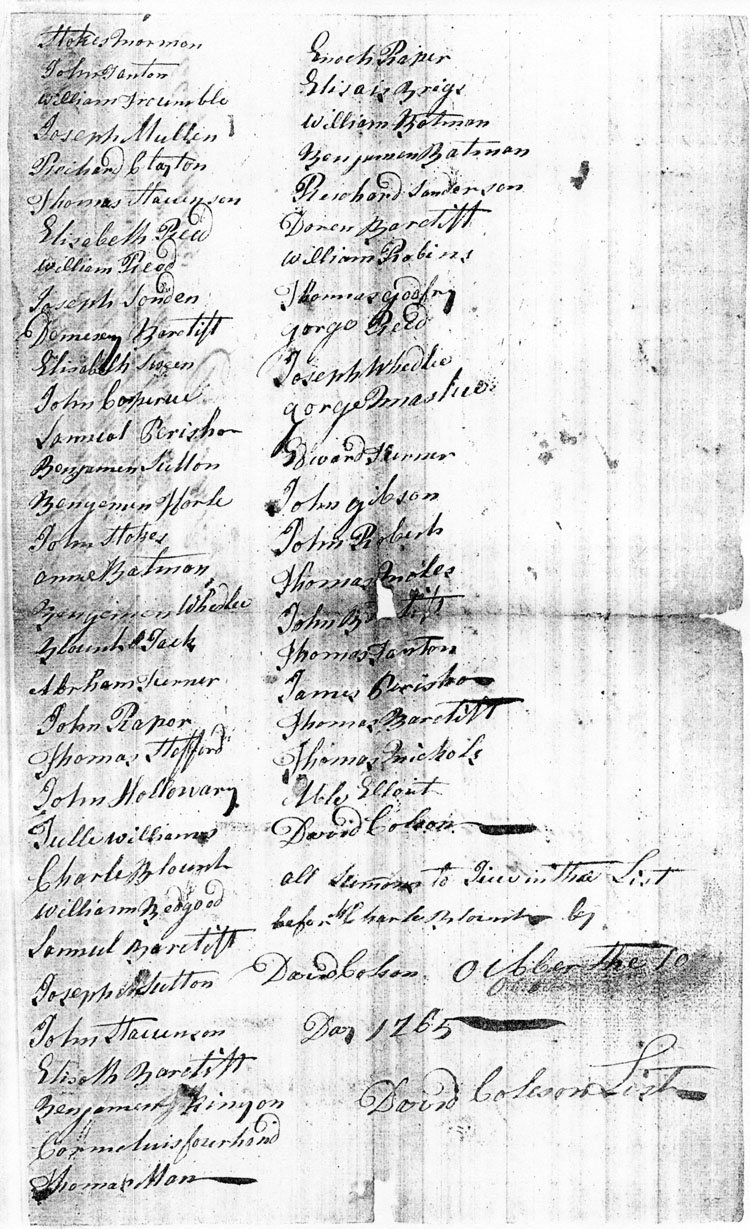 Stokes Norman
John Tanton
William Treumble
Joseph Mullen
Reichard Clayton
Thomas Stauenson
Elisabeth Reed
William Reed
Joseph Sonden
Demcy Barclift
Elisabeth Sween
John
Samuel Perishor
Benjamen Sutton
Bengemen Horle
John Stokes
anne Batman
Bengemen Whedlee
Blount Jack
Abrham Turner
John Rapor
Thomas Stafford
John Hollowary
Tulle williams
Charle Blount
William Bedgood
Samuel Barclift
Joseph Sutton
John Stauenson
Elisoth Barclift
Benjamen Kinyon
Corneluis fourhand
Thomas Man
Enoch Raper
Elisais Brigs
William Batman
Benjamen Batman
Reichard Sanderson
Doren Barclift
William Robins
Thomas godfry
gorge Reed
Joseph Whedlee
gorge
Edward Turner
John gibson
John Roberts
Thomas
John Ba lift
Thomas Tanton
James Perishor
Thomas Barclift
Thomas Nichols
Able Ellout
David Colson
all Sumons to Giue in thar List
befor Charles Blount by
David Colson October the 10
Day 1765
David Coleson List